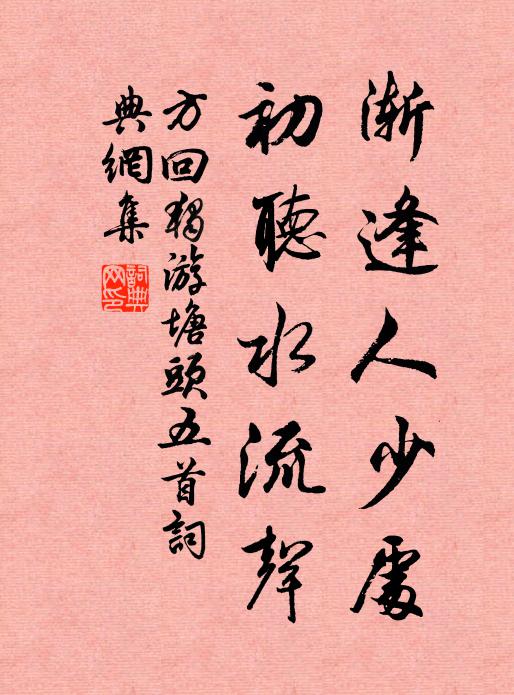 漸逢人少處
初聽水流聲
方回獨游塘頭五首詞
典網集
詞典網印